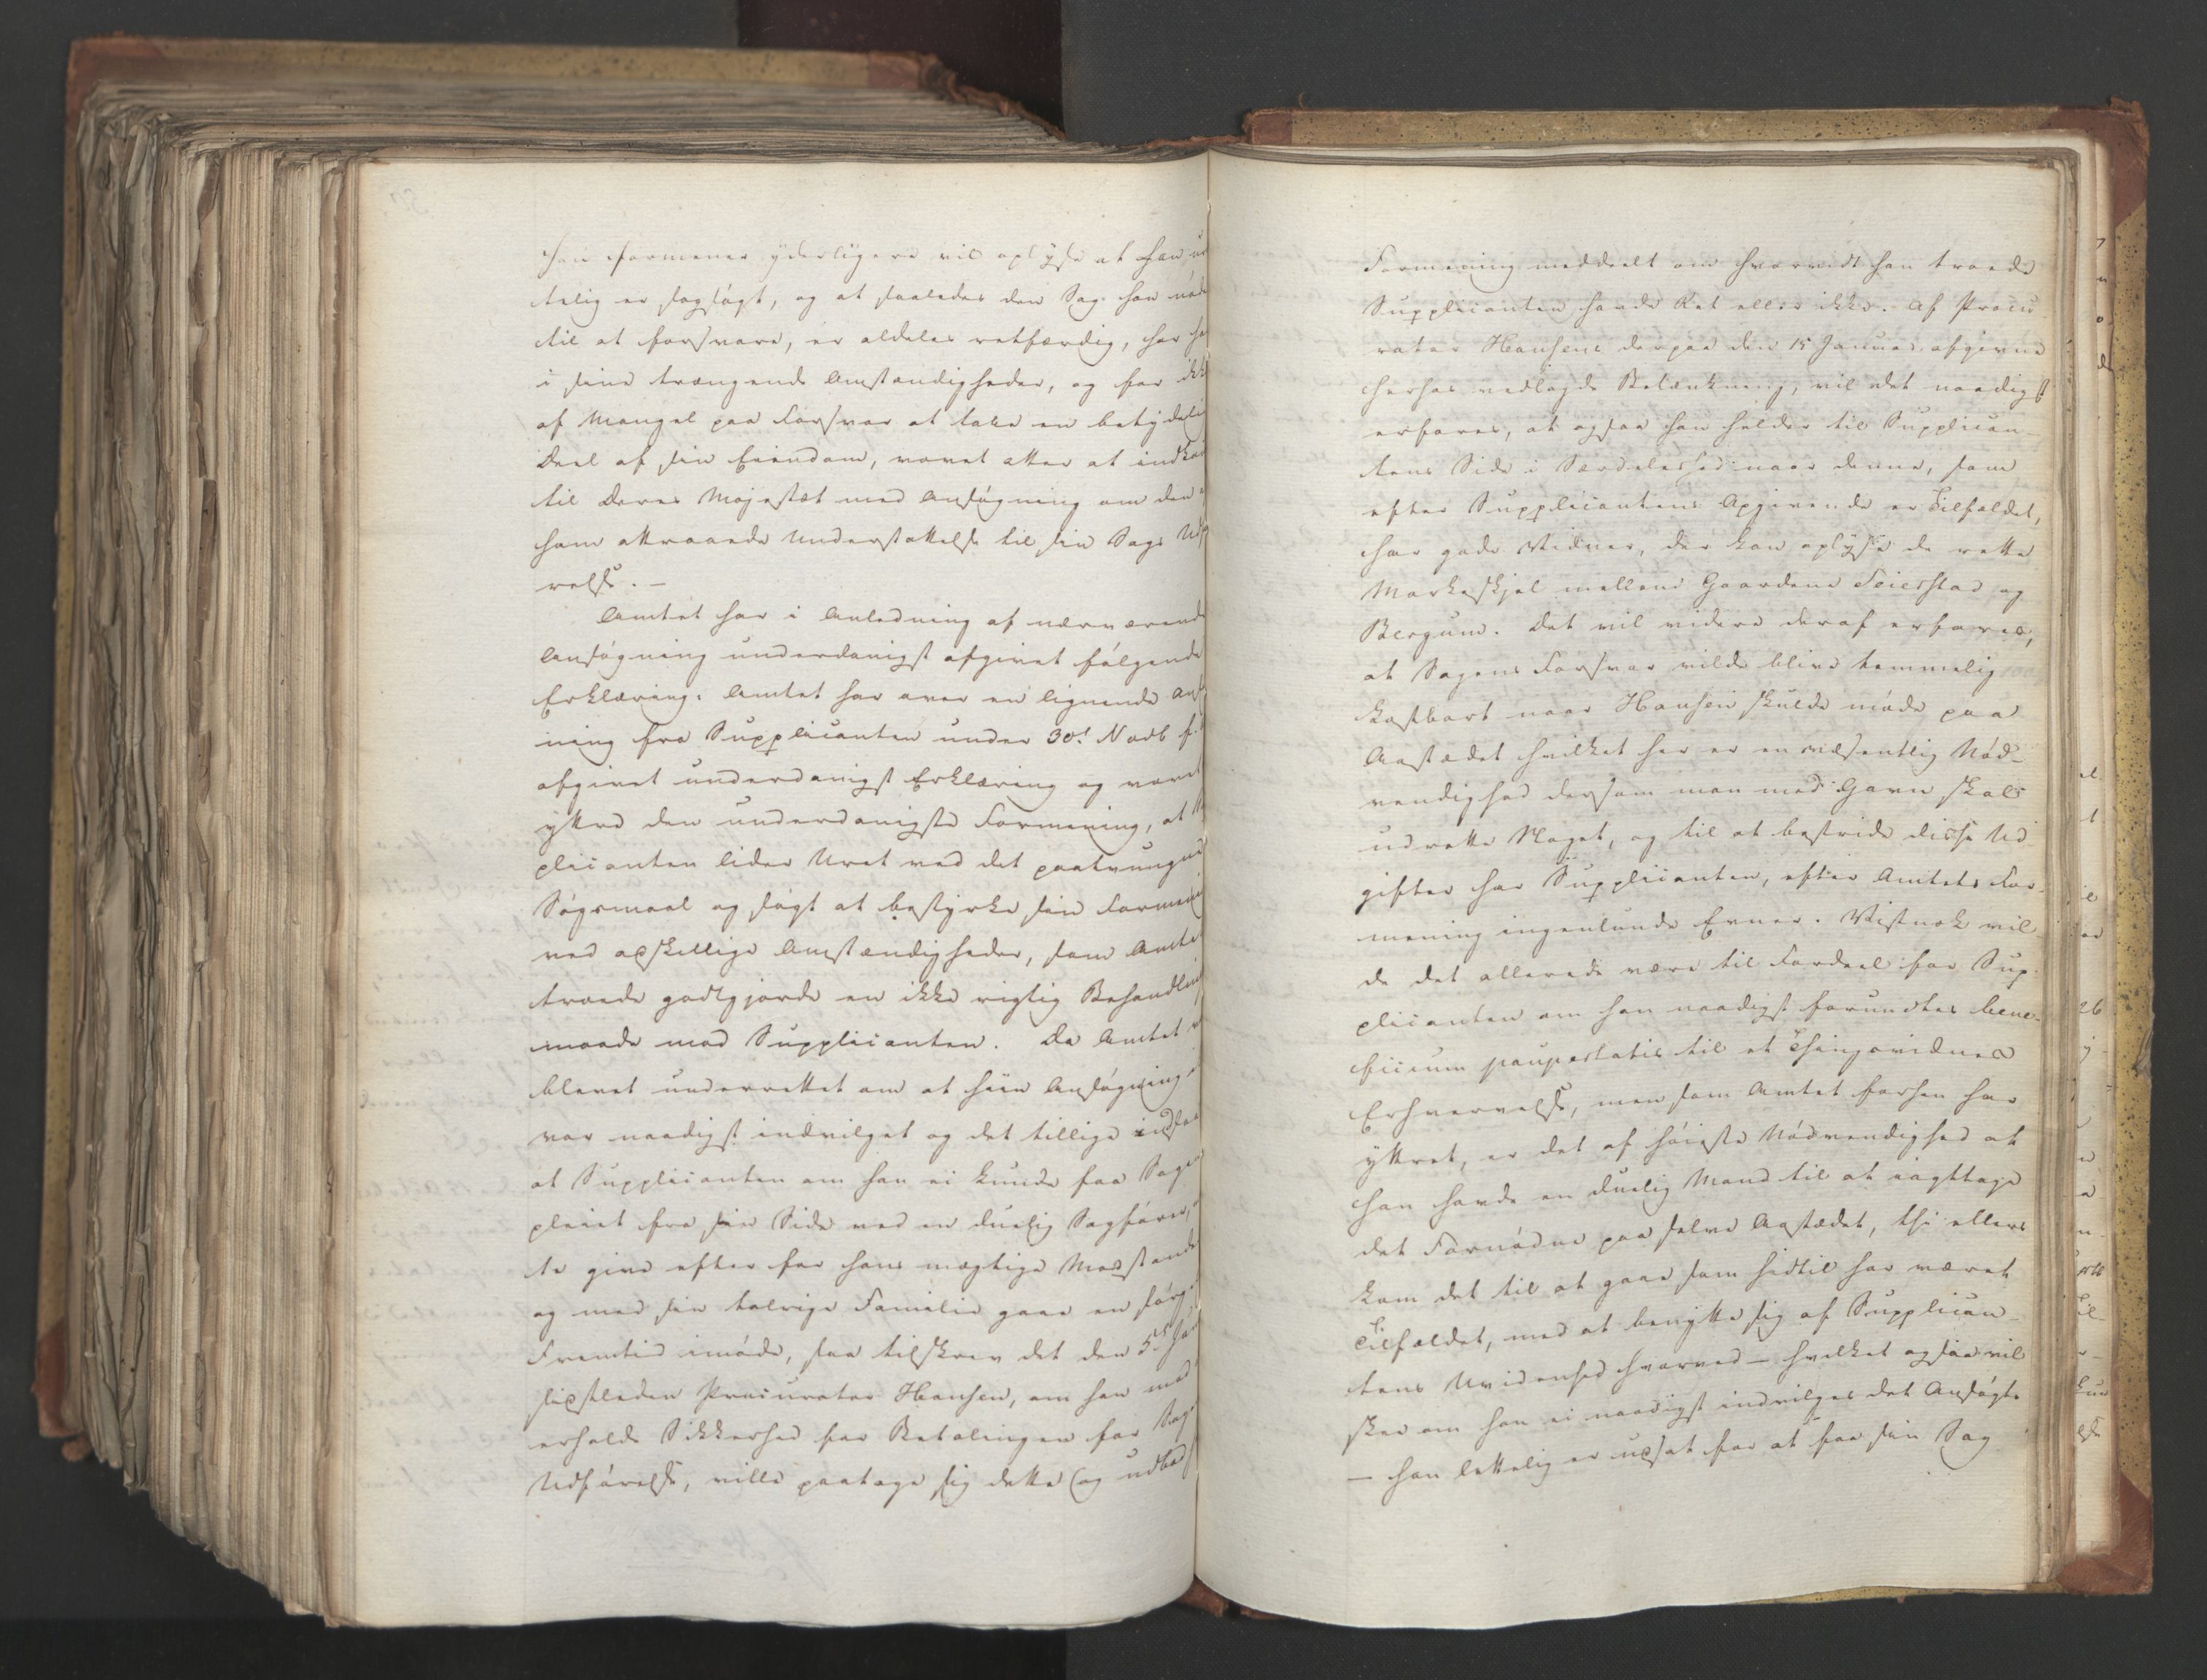 han formener yderligere vil oplyse at han u
tilig er sagsøgt, og at saaledes den Sag han nød
til at forsvare, er aldeles retfærdig, har ha
i sine trængende Omstændigheder, og for ikk
af Mangel paa Forsvar at tabe en betydeli
Deel af sin Eiendom, vovet atter at indko
til Deres Majestæt med Ansøgning om den
ham attraaede Understøttelse til sin Sags Udf
relse. —
Amtet har i Anledning af nærværende
Ansøgning underdanigst afgivet følgende
Erklæring: Amtet har over en lignende Ans
ning fra Supplicanten under 30t Novb f.
afgivet underdanigst Erklæring og vovet
yttre den underdanigste Formening, at
plicanten lider Uret ved det paatvungne
Søgsmaal og søgt at bestyrke sin Formeni
ved adskillige Omstændigheder, som Amte
troede godtgjorde en ikke rigtig Behandlin
maade mod Supplicanten. Da Amtet
blevet underrettet om at hiin Ansøgning
var naadigst indvilget og det tillige indsaa
at Supplicanten om han ei kunde faa Sage
pleiet fra sin Side ved en duelig Sagfører,
te give efter for hans mægtige Modstande
og med sin talrige Familie gaae en sørg
Fremtid imøde, saa tilskrev det den 5t Jan
sidstleden Procurator Hansen, om han mod
erholde Sikkerhed for Betalingen for Sag
Udførelse, ville paatage sig dette og udbad
Formening meddeelt om hvorvidt han troede
Supplicanten havde Ret eller ikke. Af Procu
rator Hansens derpaa den 15 Januar afgivne
herhos vedlagde Betænkning, vil det naadigst
erfares, at ogsaa han holder til Supplican-
tens Side i Særdeleshed naar denne, som
efter Supplicantens Opgivende er Tilfældet,
har gode Vidner, der kan oplyse de rette
Markeskjel mellem Gaardene Seierstad og
Bergum. Det vil videre deraf erfares,
at Sagens Forsvar vilde blive temmelig
kostbart naar Hansen skulde møde paa
Aastædet hvilket her er en væsentlig Nød-
vendighed dersom man med Gavn skal
udrette Noget, og til at bestride disse Ud
gifter har Supplicanten, efter Amtets For-
mening ingenlunde Evner. Vistnok vil-
de det allerede være til Fordeel for Sup-
plicanten om han naadigst forundtes bene-
ficium paupertatis til et Thingsvidnes
Erhvervelse, men som Amtet forhen har
yttret, er det af høieste Nødvendighed at
han havde en duelig Mand til at iagttage
det Fornødne paa selve Aastædet, thi ellers
kom det til at gaae som hidtil har været
Tilfældet, med at benytte sig af Supplican-
tens Uvidenhed hvorved — hvilket ogsaa vil
skee om han ei naadigst indvilges det Ansøgte
— han lettelig er udsat for at faa sin Sag